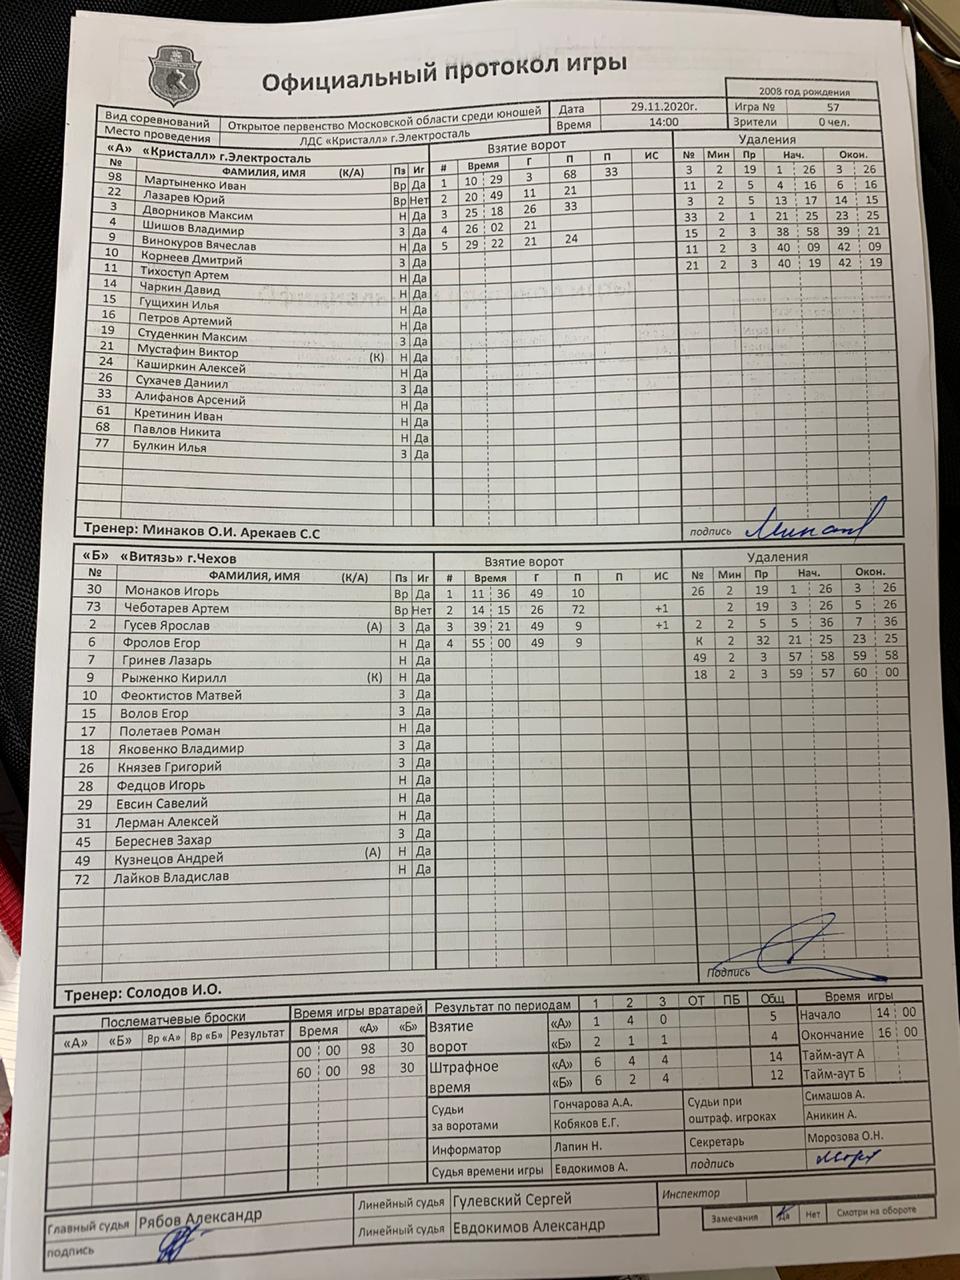 Официальный протокол игры
2008 год рождения
Вид соревнований Открытое первенство Московской области среди юношей Дата 29.11.2020г. Игра № 57
Место проведения ЛДС «Кристалл» г.Электросталь Время 14:00 Зрители 0 чел.
«А» «Кристалл» г.Электросталь Взятие ворот Удаления
№ ФАМИЛИЯ, ИМЯ (К/А) Пз Иг # Время Г П П ИС № Мин Пр Нач. Окон.
98 Мартыненко Иван Вр Да 1 10 29 3 68 33 3 2 19 1 26 3 26
22 Лазарев Юрий Вр Нет 2 20 49 11 21 11 2 5 4 16 6 16
3 Дворников Максим Н Да 3 25 18 26 33 3 2 5 13 17 14 15
4 Шишов Владимир З Да 4 26 02 21 33 2 1 21 25 23 25
9 Винокуров Вячеслав Н Да 5 29 22 21 24 15 2 3 38 58 39 21
10 Корнеев Дмитрий З Да 11 2 3 40 09 42 09
11 Тихоступ Артем Н Да 21 2 3 40 19 42 19
14 Чаркин Давид Н Да
15 Гущихин Илья Н Да
16 Петров Артемий Н Да
19 Студенкин Максим З Да
21 Мустафин Виктор (К) Н Да
24 Каширкин Алексей Н Да
26 Сухачев Даниил З Да
33 Алифанов Арсений Н Да
61 Кретинин Иван Н Да
68 Павлов Никита Н Да
77 Булкин Илья З Да
Тренер: Минаков О.И. Арекаев С.С подпись
«Б» «Витязь» г.Чехов Взятие ворот Удаления
№ ФАМИЛИЯ, ИМЯ (К/А) Пз Иг # Время Г П П ИС № Мин Пр Нач. Окон.
30 Монаков Игорь Вр Да 1 11 36 49 10 26 2 19 1 26 3 26
73 Чеботарев Артем Вр Нет 2 14 15 26 72 +1 2 19 3 26 5 26
2 Гусев Ярослав (А) З Да 3 39 21 49 9 +1 2 2 5 5 36 7 36
6 Фролов Егор Н Да 4 55 00 49 9 К 2 32 21 25 23 25
7 Гринев Лазарь Н Да 49 2 3 57 58 59 58
9 Рыженко Кирилл (К) Н Да 18 2 3 59 57 60 00
10 Феоктистов Матвей З Да
15 Волов Егор З Да
17 Полетаев Роман Н Да
18 Яковенко Владимир З Да
26 Князев Григорий З Да
28 Федцов Игорь Н Да
29 Евсин Савелий Н Да
31 Лерман Алексей Н Да
45 Береснев Захар З Да
49 Кузнецов Андрей (А) Н Да
72 Лайков Владислав Н Да
Тренер: Солодов И.О. Подпись
Послематчевые броски Время игры вратарей Результат по периодам 1 2 3 ОТ ПБ Общ Время игры
«А» «Б» Вр «А» Вр «Б» Результат Время «А» «Б» Взятие ворот «А» 1 4 0 5 Начало 14 00
00 00 98 30 «Б» 2 1 1 4 Окончание 16 00
60 00 98 30 Штрафное время «А» 6 4 4 14 Тайм-аут А
«Б» 6 2 4 12 Тайм-аут Б
Судьи за воротами Гончарова А.А. Судьи при оштраф. игроках Симашов А.
Кобяков Е.Г. Аникин А.
Информатор Лапин Н. Секретарь Морозова О.Н.
Судья времени игры Евдокимов А. подпись
Главный судья Рябов Александр Линейный судья Гулевский Сергей Инспектор
подпись Линейный судья Евдокимов Александр Замечания Да Нет Смотри на обороте